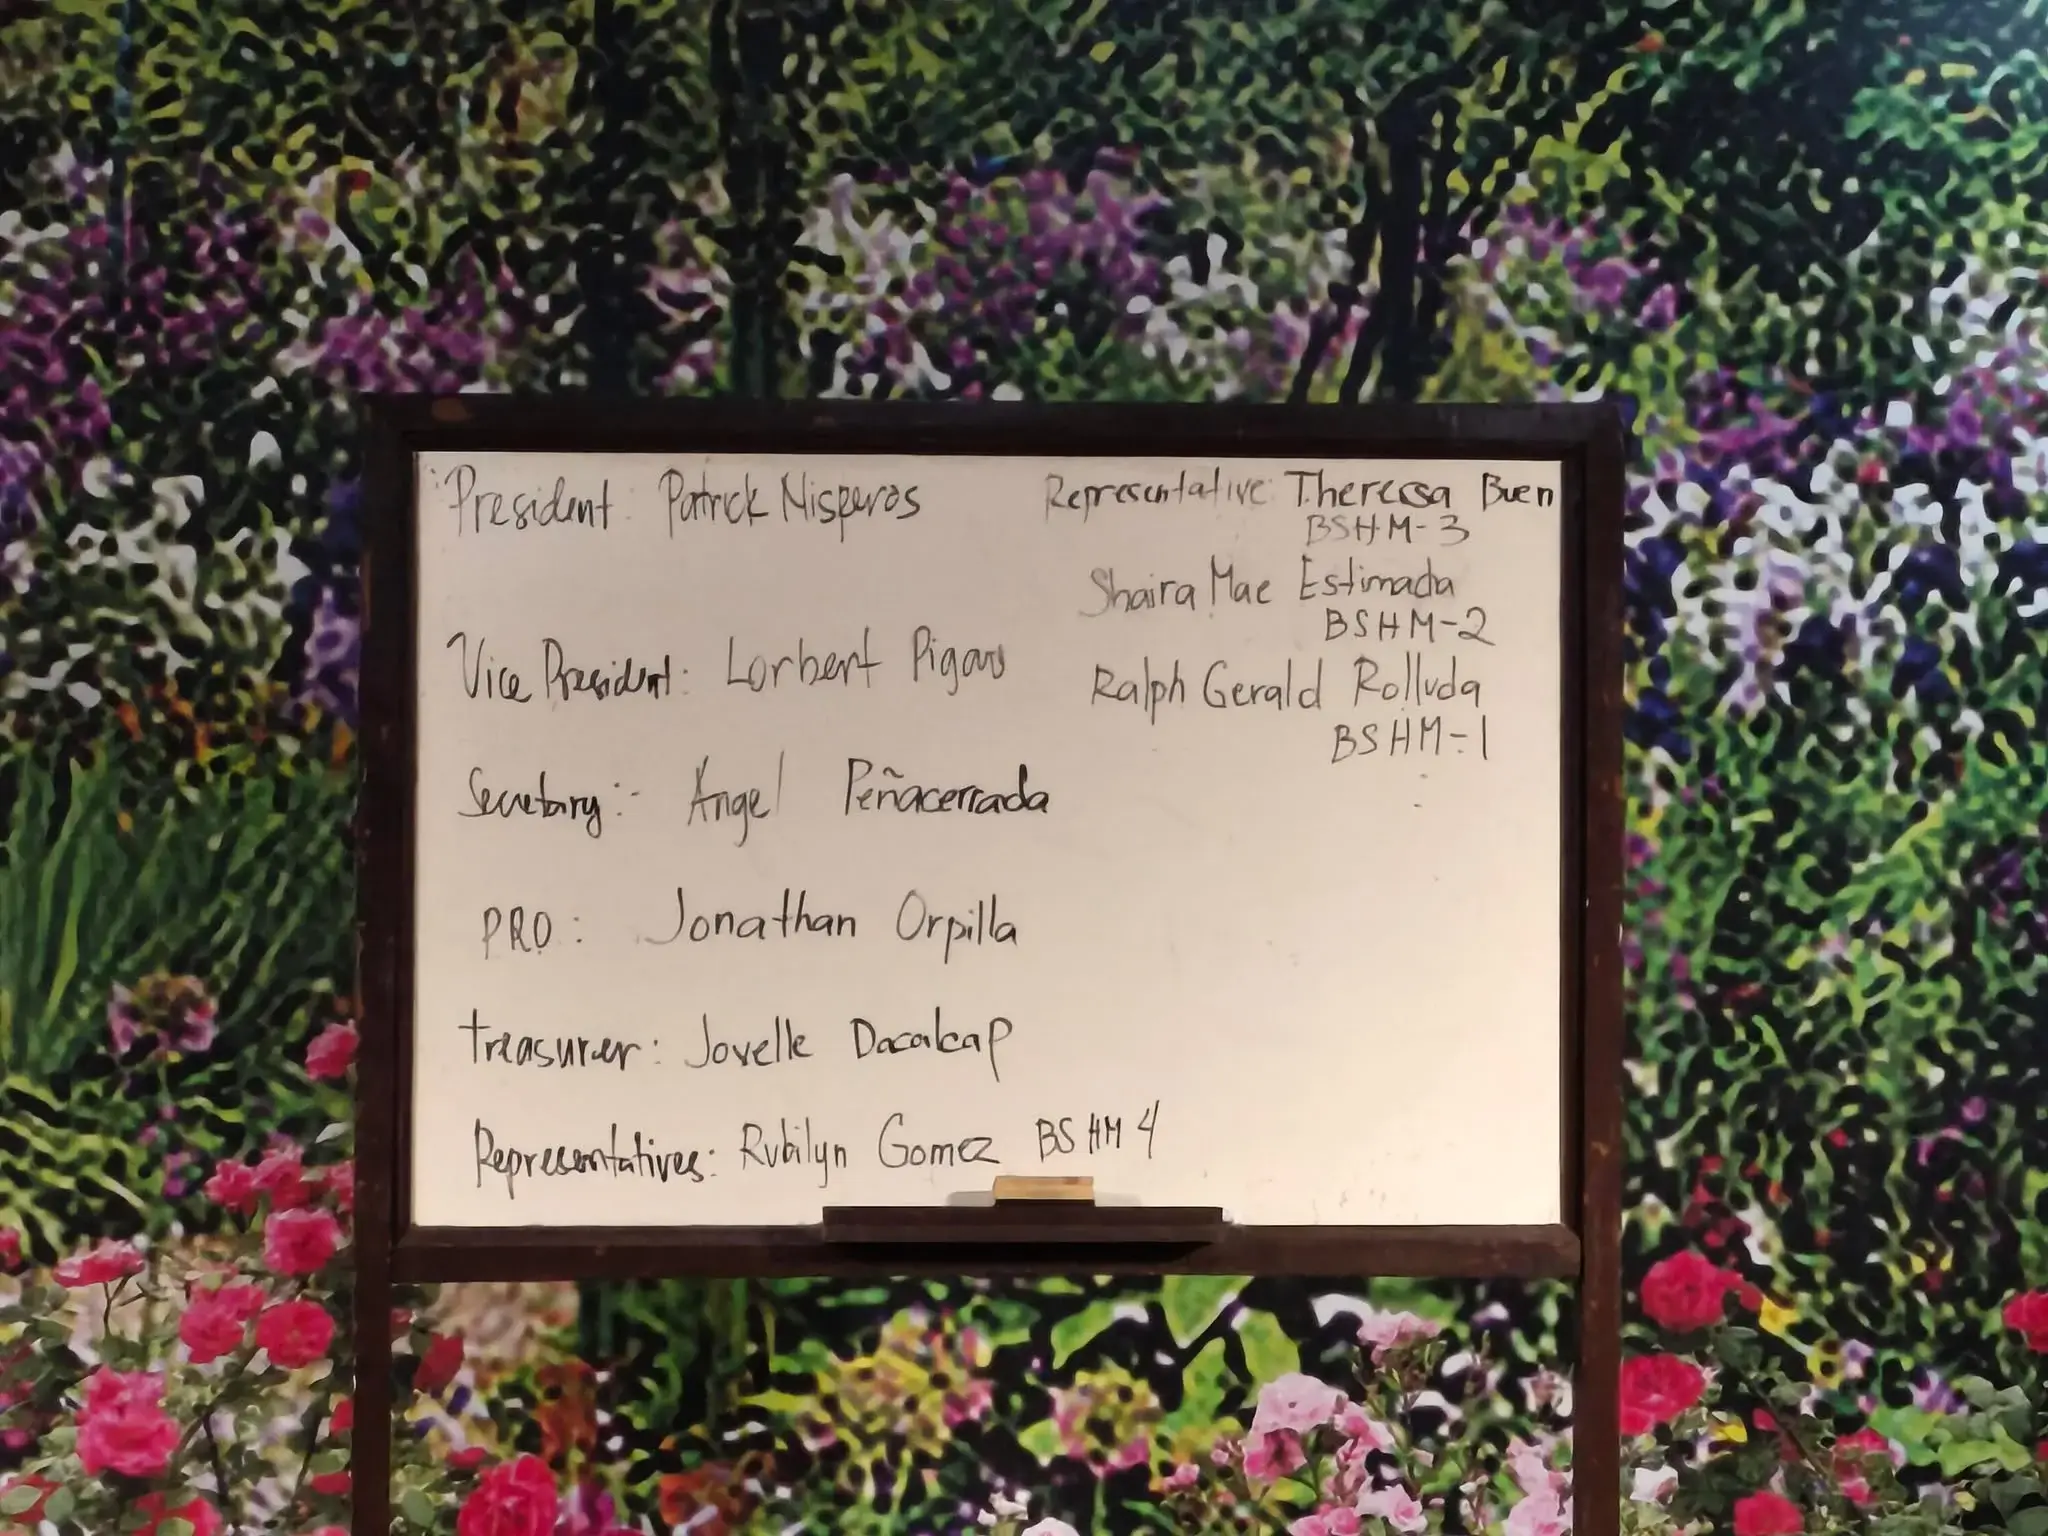 President: Patrick Nisperos
Vice President: Lorbert Pigao
Secretary:- Angel Peñacerrada
PRO: Jonathan Orpilla
treasurer: Jovelle Dacalcap
Representatives: Rubilyn Gomez BSHM 4
Representative: Theressa Buen
BSHM-3
Shaira Mae Estimada
BSHM-2
Ralph Gerald Rolluda
BSHM-1